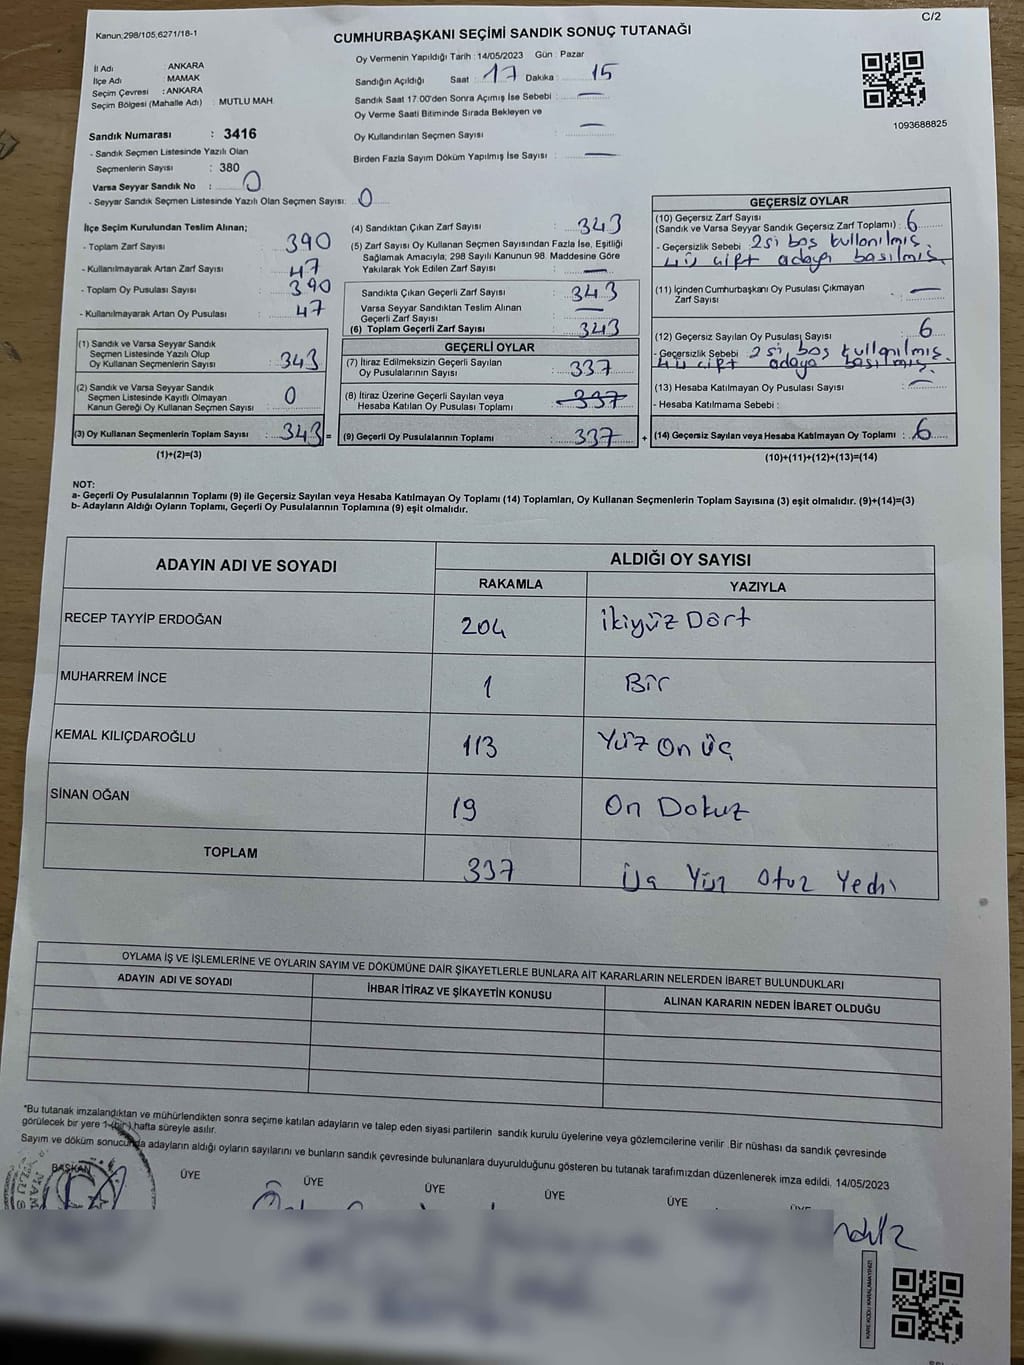 C/2
Kanun;298/105,6271/18-1
CUMHURBAŞKANI SEÇİMİ SANDIK SONUÇ TUTANAĞI
İl Adı : ANKARA
İlçe Adı : MAMAK
Seçim Çevresi : ANKARA
Seçim Bölgesi (Mahalle Adı) : MUTLU MAH.
Sandık Numarası : 3416
- Sandık Seçmen Listesinde Yazılı Olan
Seçmenlerin Sayısı : 380
Varsa Seyyar Sandık No : 0
- Seyyar Sandık Seçmen Listesinde Yazılı Olan Seçmen Sayısı: 0
Oy Vermenin Yapıldığı Tarih : 14/05/2023 Gün : Pazar
Sandığın Açıldığı Saat : 17 Dakika : 15
Sandık Saat 17:00'den Sonra Açımış İse Sebebi : —
Oy Verme Saati Bitiminde Sırada Bekleyen ve
Oy Kullandırılan Seçmen Sayısı : —
Birden Fazla Sayım Döküm Yapılmış İse Sayısı : —
1093688825
İlçe Seçim Kurulundan Teslim Alınan;
- Toplam Zarf Sayısı : 390
- Kullanılmayarak Artan Zarf Sayısı : 47
- Toplam Oy Pusulası Sayısı : 390
- Kullanılmayarak Artan Oy Pusulası : 47
(1) Sandık ve Varsa Seyyar Sandık
Seçmen Listesinde Yazılı Olup
Oy Kullanan Seçmenlerin Sayısı : 343
(2) Sandık ve Varsa Seyyar Sandık
Seçmen Listesinde Kayıtlı Olmayan
Kanun Gereği Oy Kullanan Seçmen Sayısı : 0
(3) Oy Kullanan Seçmenlerin Toplam Sayısı : 343 =
(1)+(2)=(3)
(4) Sandıktan Çıkan Zarf Sayısı : 343
(5) Zarf Sayısı Oy Kullanan Seçmen Sayısından Fazla İse, Eşitliği
Sağlamak Amacıyla; 298 Sayılı Kanunun 98. Maddesine Göre
Yakılarak Yok Edilen Zarf Sayısı : —
Sandıkta Çıkan Geçerli Zarf Sayısı : 343
Varsa Seyyar Sandıktan Teslim Alınan
Geçerli Zarf Sayısı : —
(6) Toplam Geçerli Zarf Sayısı : 343
GEÇERLİ OYLAR
(7) İtiraz Edilmeksizin Geçerli Sayılan
Oy Pusulasının Sayısı : 337
(8) İtiraz Üzerine Geçerli Sayılan veya
Hesaba Katılan Oy Pusulası Toplamı : 337
(9) Geçerli Oy Pusulalarının Toplamı : 337 +
GEÇERSİZ OYLAR
(10) Geçersiz Zarf Sayısı
(Sandık ve Varsa Seyyar Sandık Geçersiz Zarf Toplamı) : 6
- Geçersizlik Sebebi 2si boş kullanılmış.
4ü çift adaya basılmış.
(11) İçinden Cumhurbaşkanı Oy Pusulası Çıkmayan
Zarf Sayısı : —
(12) Geçersiz Sayılan Oy Pusulası Sayısı : 6
- Geçersizlik Sebebi 2si boş kullanılmış.
4ü çift adaya basılmış.
(13) Hesaba Katılmayan Oy Pusulası Sayısı : —
- Hesaba Katılmama Sebebi :
(14) Geçersiz Sayılan veya Hesaba Katılmayan Oy Toplamı : 6
(10)+(11)+(12)+(13)=(14)
NOT:
a- Geçerli Oy Pusulalarının Toplamı (9) ile Geçersiz Sayılan veya Hesaba Katılmayan Oy Toplamı (14) Toplamları, Oy Kullanan Seçmenlerin Toplam Sayısına (3) eşit olmalıdır. (9)+(14)=(3)
b- Adayların Aldığı Oyların Toplamı, Geçerli Oy Pusulalarının Toplamına (9) eşit olmalıdır.
ADAYIN ADI VE SOYADI ALDIĞI OY SAYISI
RAKAMLA YAZIYLA
RECEP TAYYİP ERDOĞAN 204 ikiyüz Dört
MUHARREM İNCE 1 Bir
KEMAL KILIÇDAROĞLU 113 Yüz On üç
SİNAN OĞAN 19 On Dokuz
TOPLAM 337 Üç Yüz Otuz Yedi
OYLAMA İŞ VE İŞLEMLERİNE VE OYLARIN SAYIM VE DÖKÜMÜNE DAİR ŞİKAYETLERLE BUNLARA AİT KARARLARIN NELERDEN İBARET BULUNDUKLARI
ADAYIN ADI VE SOYADI İHBAR İTİRAZ VE ŞİKAYETİN KONUSU ALINAN KARARIN NEDEN İBARET OLDUĞU
*Bu tutanak imzalandıktan ve mühürlendikten sonra seçime katılan adayların ve talep eden siyasi partilerin sandık kurulu üyelerine veya gözlemcilerine verilir. Bir nüshası da sandık çevresinde
görülecek bir yere 1 (bir) hafta süreyle asılır.
Sayım ve döküm sonucunda adayların aldığı oyların sayılarını ve bunların sandık çevresinde bulunanlara duyurulduğunu gösteren bu tutanak tarafımızdan düzenlenerek imza edildi. 14/05/2023
BAŞKAN ÜYE ÜYE ÜYE ÜYE ÜYE ÜYE
KARE KODU KARALAMAYINIZ!